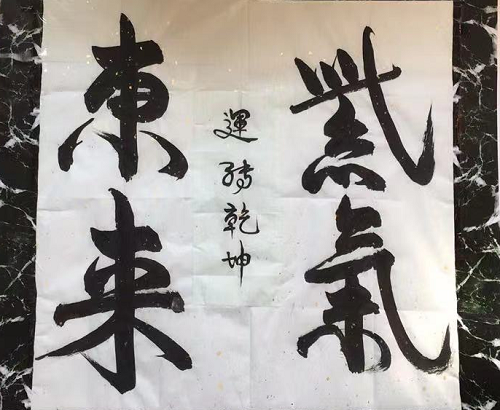 紫氣
運轉乾坤
東来